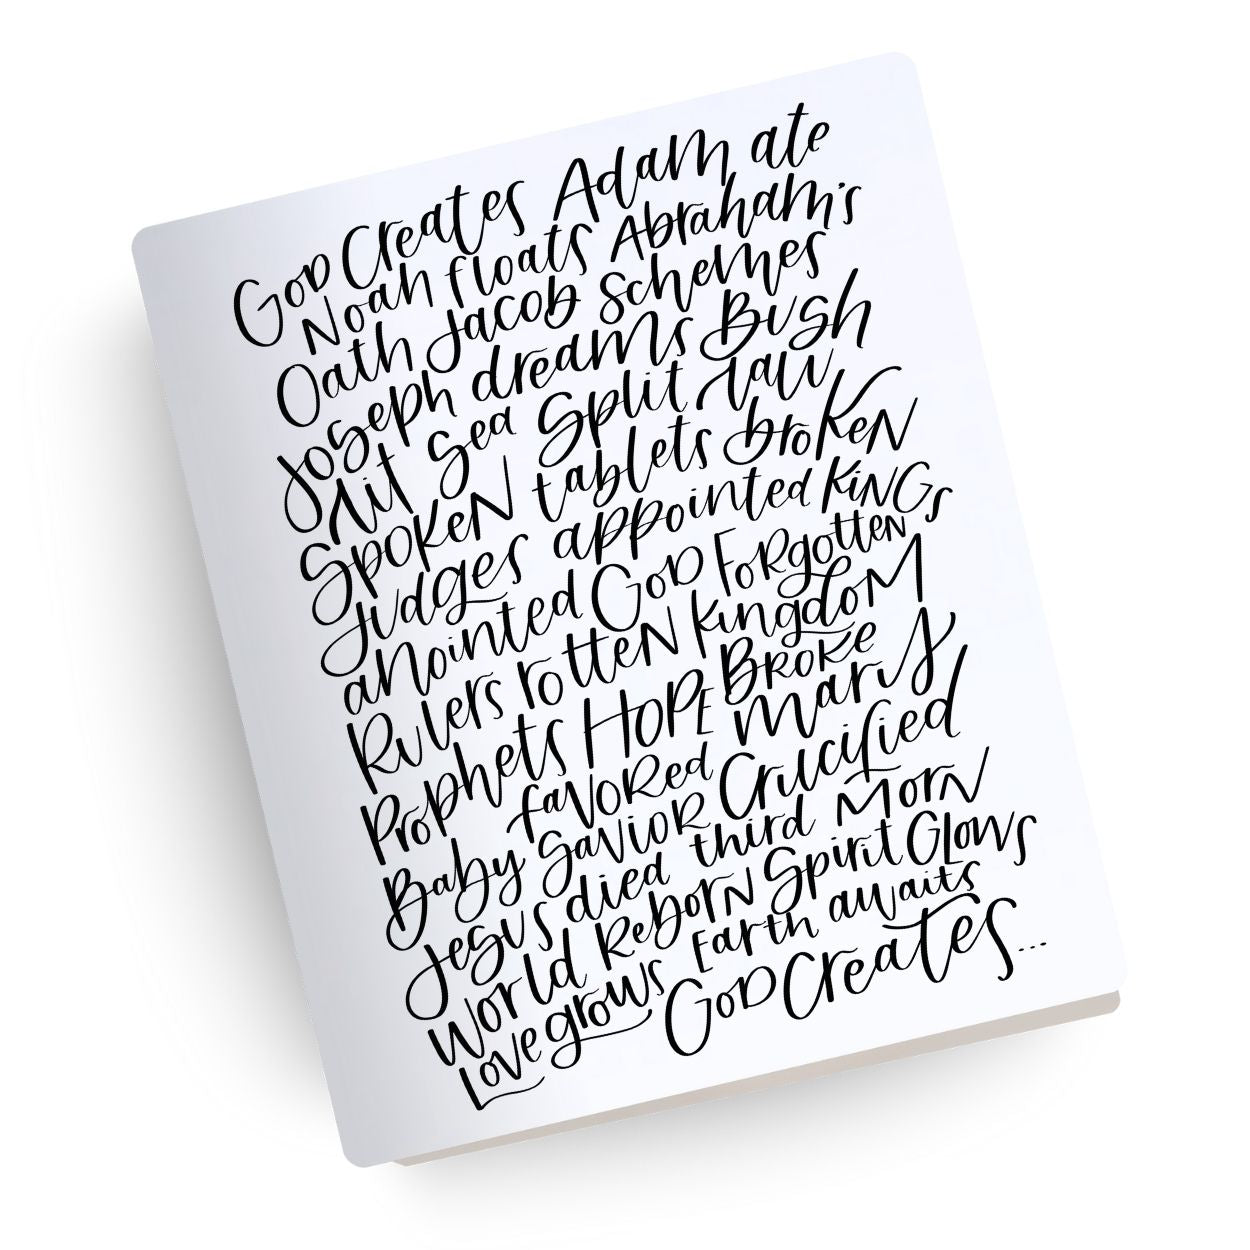 GoD Creates Adam ate
Noah floats Abraham's
Oath Jacob Schemes
Joseph dreams Bush
Lit Sea Split Law
Spoken tablets broken
Judges appointed Kings
anointed GoD Forgotten
Rulers rotten kingdom
Prophets HOPE Broke
favored Mary
Baby Savior Crucified
Jesus died third Morn
World Reborn Spirit Glows
Love grows Earth awaits
GoD Creates...